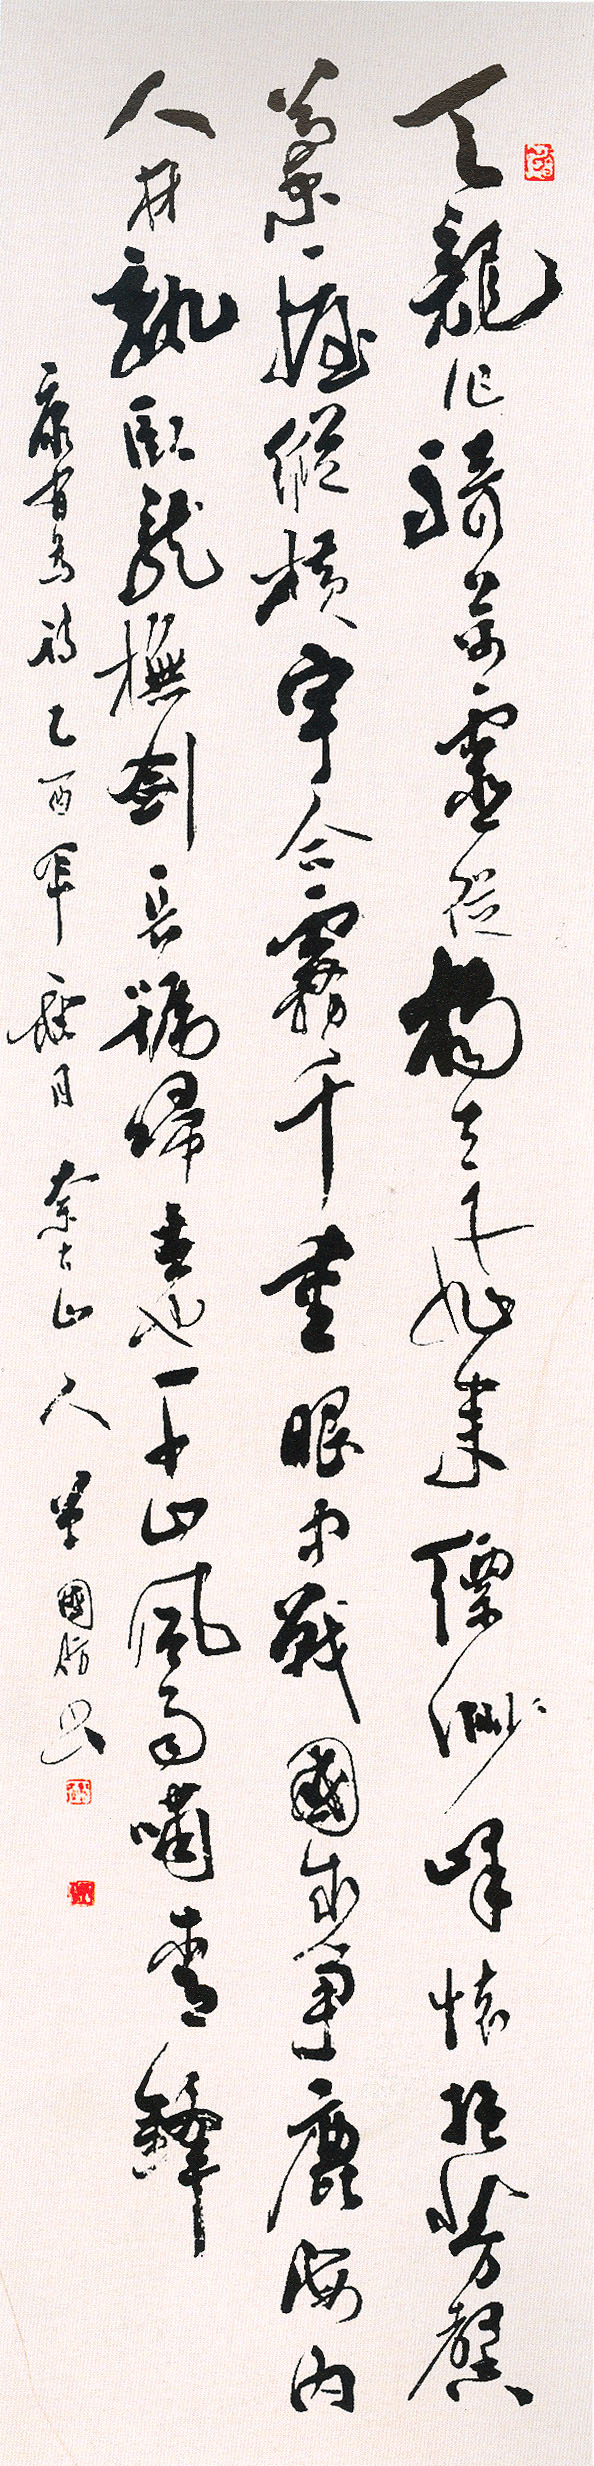 天龍作騎萬靈從獨立飛來縹緲峰懷抱芳馨
蘭一握縱橫宇合霧千重眼中戰國成爭鹿海內
人材孰臥龍撫劍長號歸去也千山風雨嘯青鋒
康有為詩乙酉年月山人國書